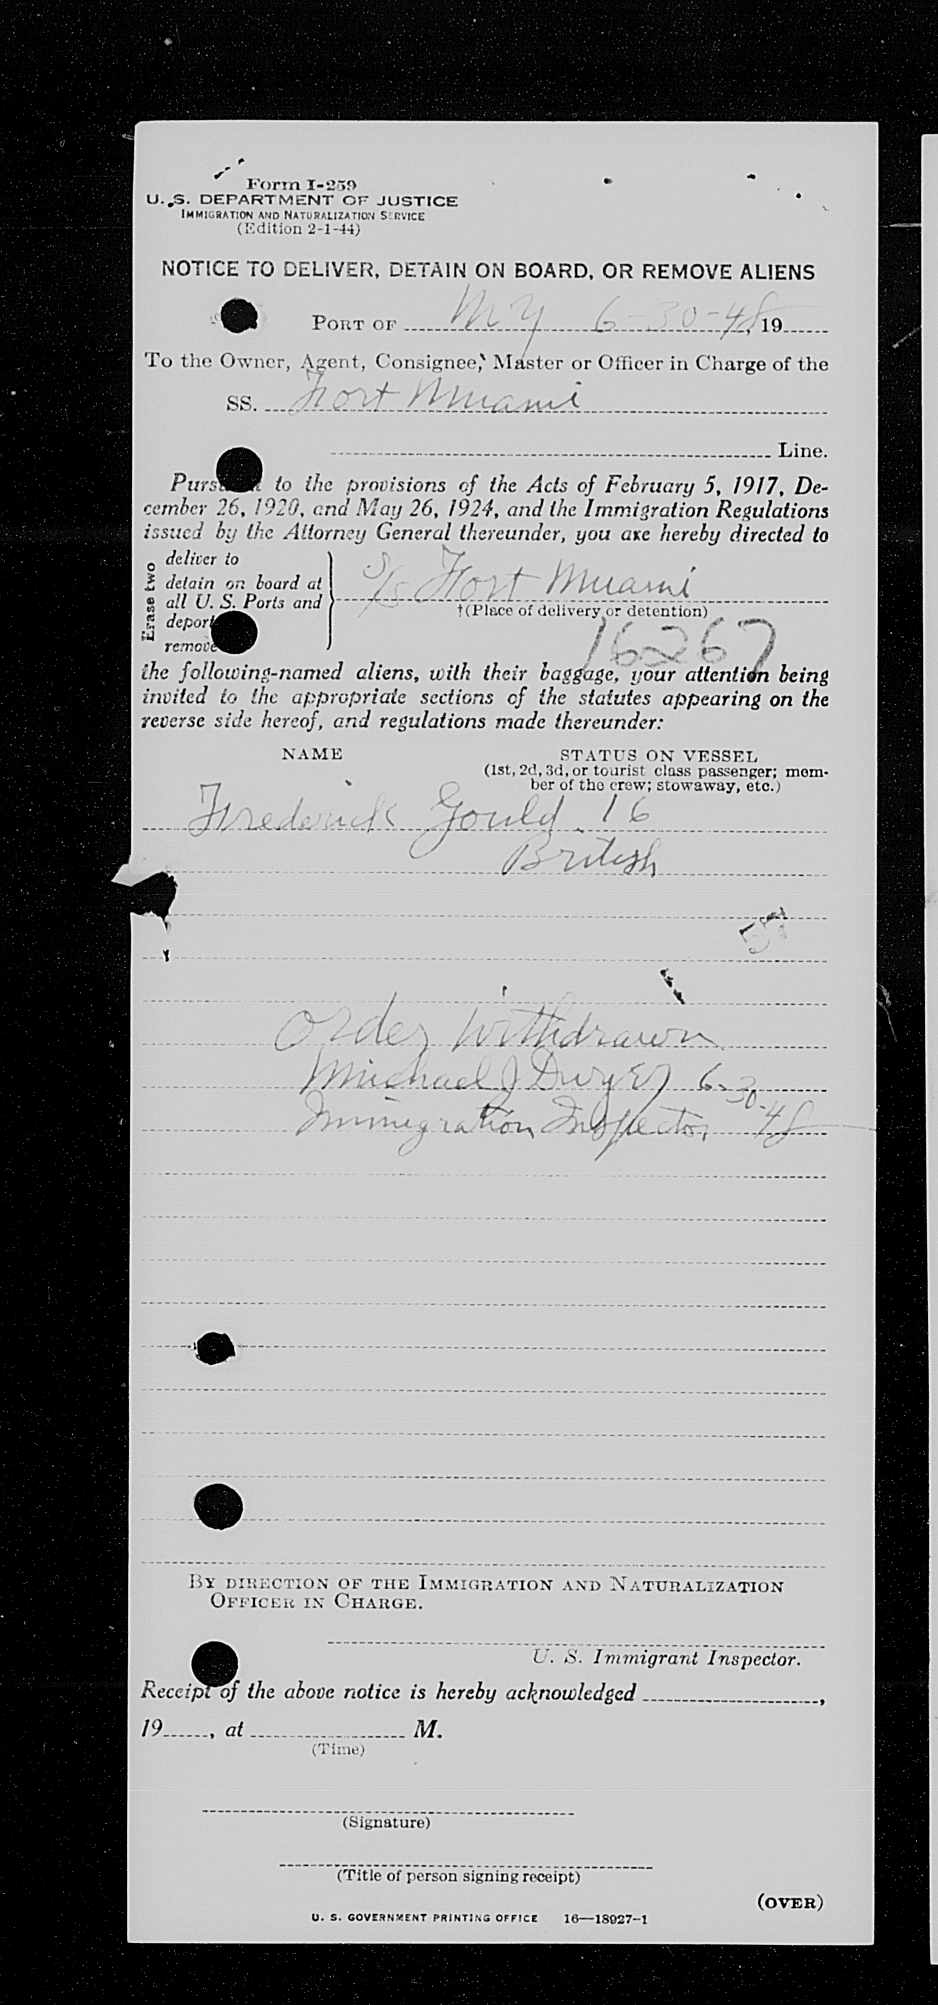 Form I-259
U. S. DEPARTMENT OF JUSTICE
IMMIGRATION AND NATURALIZATION SERVICE
(Edition 2-1-44)
NOTICE TO DELIVER, DETAIN ON BOARD, OR REMOVE ALIENS
PORT OF NY 6-30-48, 19
To the Owner, Agent, Consignee, Master or Officer in Charge of the
SS. Fort Miami
Line.
Pursuant to the provisions of the Acts of February 5, 1917, De-
cember 26, 1920, and May 26, 1924, and the Immigration Regulations
issued by the Attorney General thereunder, you are hereby directed to
Erase two
deliver to
detain on board at
all U. S. Ports and
deport
remove
S/S Fort Miami
†(Place of delivery or detention)
16267
the following-named aliens, with their baggage, your attention being
invited to the appropriate sections of the statutes appearing on the
reverse side hereof, and regulations made thereunder:
NAME STATUS ON VESSEL
(1st, 2d, 3d, or tourist class passenger; mem-
ber of the crew; stowaway, etc.)
Frederick Gould 16
British
57
Order Withdrawn
Michael J Dwyer 6-30-48
Immigration Inspector
BY DIRECTION OF THE IMMIGRATION AND NATURALIZATION
OFFICER IN CHARGE.
U. S. Immigrant Inspector.
Receipt of the above notice is hereby acknowledged ,
19 , at M.
(Time)
(Signature)
(Title of person signing receipt)
(OVER)
U. S. GOVERNMENT PRINTING OFFICE 16—18927-1